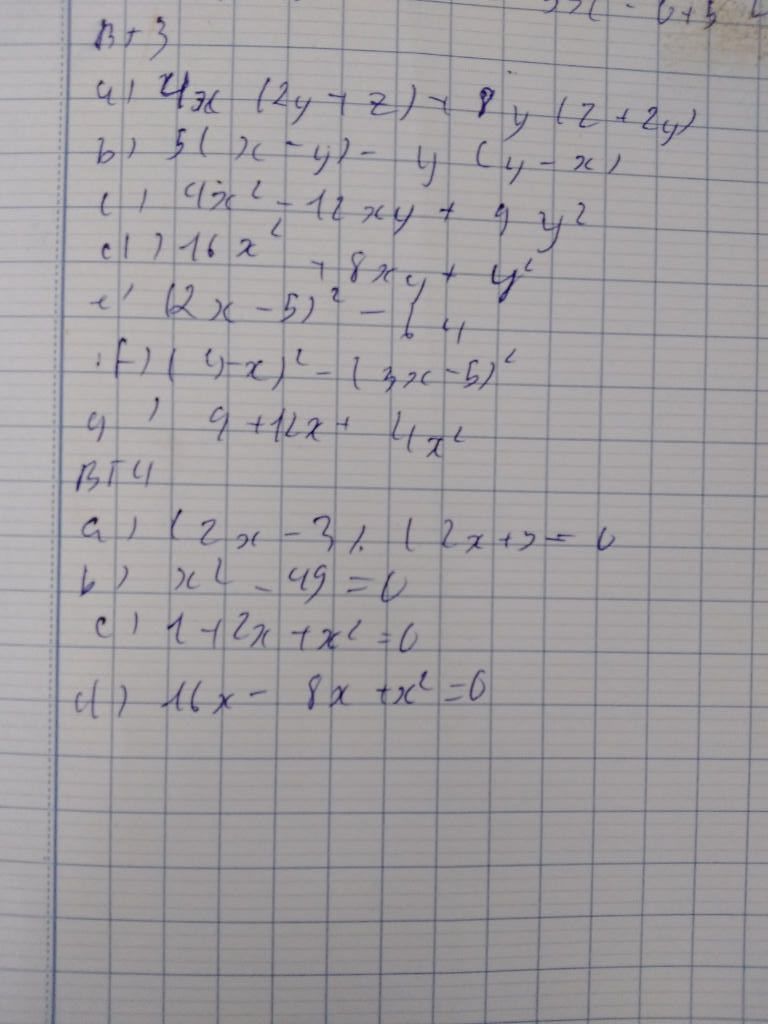 BT3
a) 4x (2y + z) + 8y (z + 2y)
b) 5(x - y) - y (y - x)
c) 4x² - 12xy + 9y²
d) 16x² + 8xy + y²
e) (2x - 5)² - 64
f) (4-x)² - (3x - 5)²
g) 9 + 12x + 4x²
BT4
a) (2x - 3). (2x + = 0
b) x² - 49 = 0
c) 1 + 2x + x² = 0
d) 16x - 8x + x² = 0